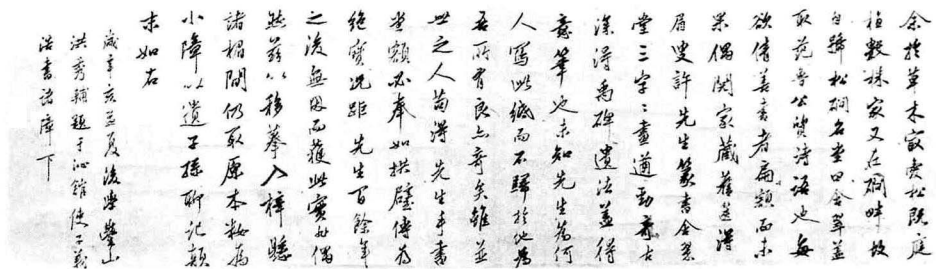 余於草木最愛松既庭
植數株家又在磵畔故
自號松磵名堂曰含翠蓋
取范魯公質詩語也每
欲倩善書者扁額而未
果偶閱家藏舊造得
眉叟許先生篆書含翠
堂三字字畫遒勁蒼古
深得禹碑遺法蓋得
意筆也未知先生為何
人寫此紙而不歸於他為
吾所有良亦奇矣雖並
世之人苟得先生手書
堂額必奉如拱璧傳為
絕寶況距先生百餘年
之後無因而獲此寶非偶
然茲以移摹入梓懸
諸楣間仍取原本粧為
小障以遺子孫聊記顛
末如右
歲辛亥孟夏後學擊山
洪秀輔題于沁館使子義
浩書諸障下